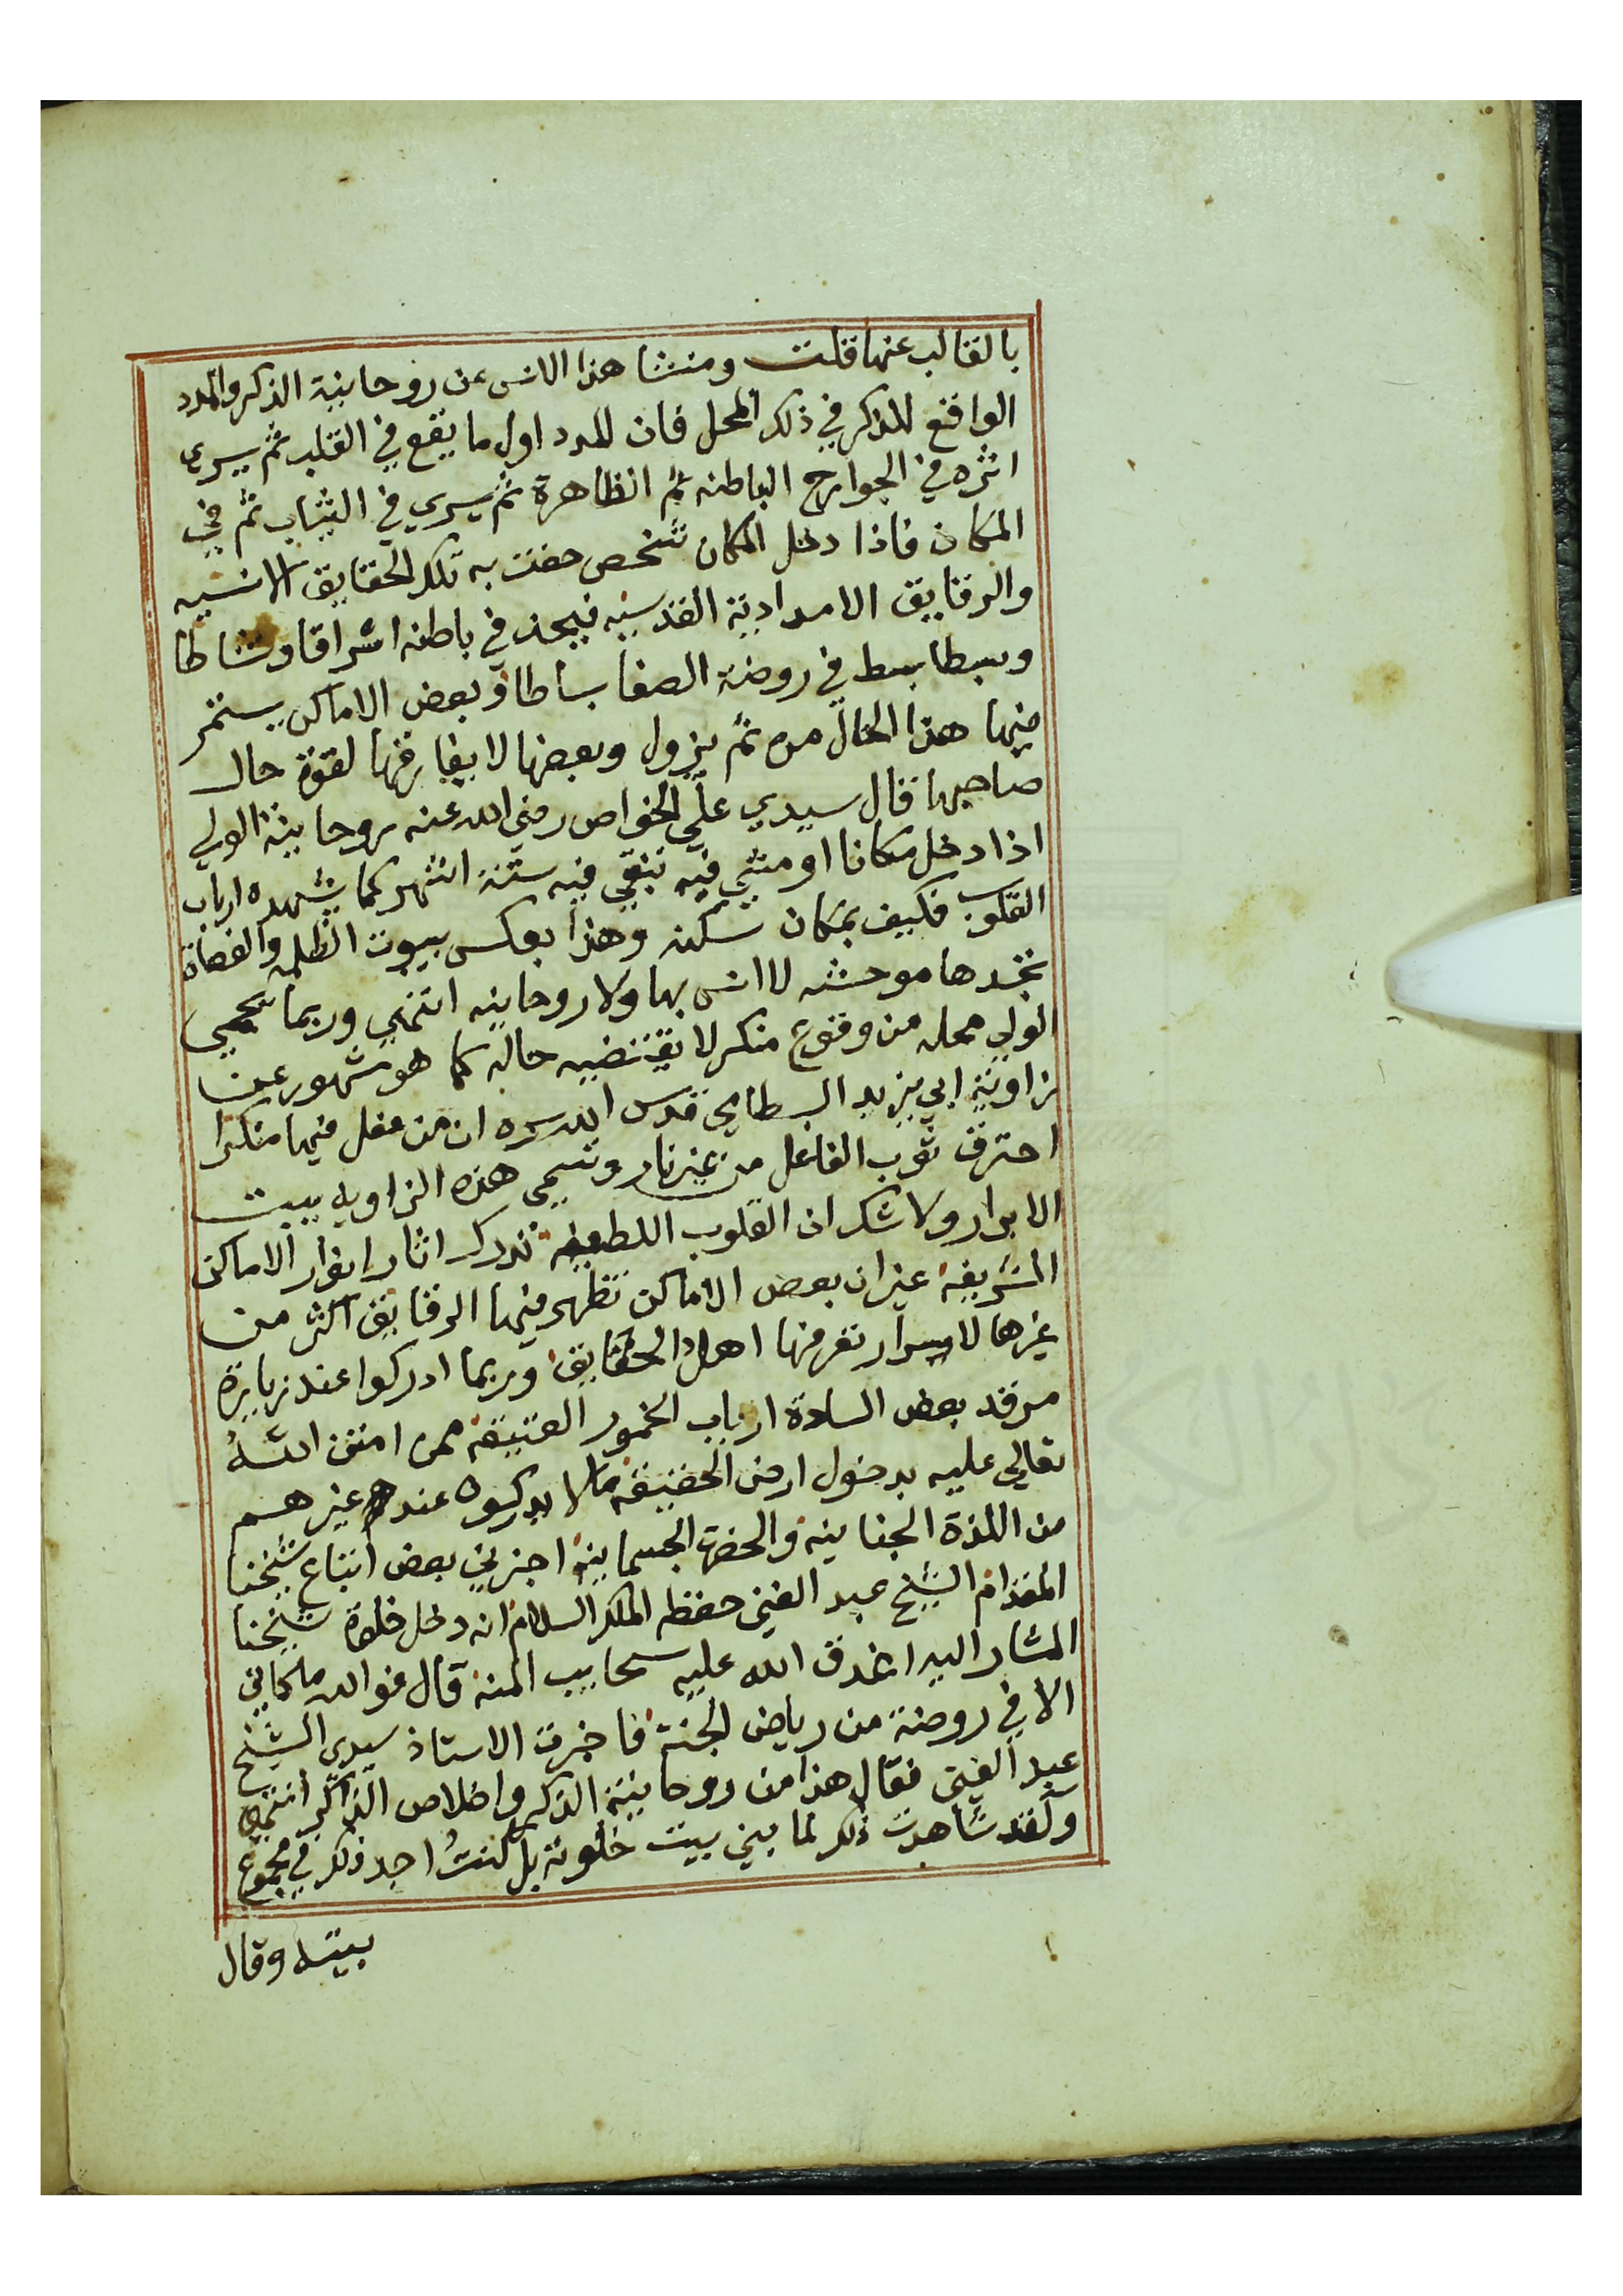 بالقالب عنها قلت ومنشا هذا الانس من روحانية الذكر والمدد
الواقع للذاكر في ذلك المحل فان المدد اول ما يقع في القلب ثم يسرى
اثره في الجوارح الباطنه ثم الظاهرة ثم يسري في الثياب ثم في
المكان فاذا دخل المكان شخص حفت به تلك الحقايق الانسيه
والرقايق الامدادية القدسيه فيجد في باطنه اشراقا ونشاطا
وبسطا يبسط في روضة الصفا بساطا وبعض الاماكن يستمر
فيها هذا الحال مده ثم يزول وبعضها لا يفارقها لقوة حال
صاحبها قال سيدي علي الخواص رضي الله عنه روحانية الولي
اذا دخل مكانا او مشي فيه تبقي فيه ستة اشهر كما يشهده ارباب
القلوب فكيف بمكان سكنه وهذا بعكس بيوت الظلمه والقضاة
تجدها موحشه لا انس بها ولا روحانيه انتهي وربما يحمي
الولي محله من وقوع منكر لا يقتضيه حاله كما هو مشهور عن
زاوية ابي يزيد البسطامي قدس الله سره ان من عفل فيها منكرا
احترق ثوب الفاعل من غير نار وتسمي هذه الزاويه ببيت
الابرار ولا شك ان القلوب اللطيفه تدرك اثار انوار الاماكن
الشريفه غير ان بعض الاماكن تظهر فيها الرقايق اكثر من
غيرها لاسرار تعرفها اهل الحقايق وربما ادركوا عند زيارة
مرقد بعض السادة ارباب الخمور العتيقه ممن امتن الله
تعالي عليه بدخول ارض الحقيقه ما لا يدركوه عند غيرهم
من اللذة الجنانيه والجسمانيه اخبرني بعض اتباع شيخنا
المقدام الشيخ عبد الغني حفظه الملك السلام انه دخل خلوة شيخنا
المشار اليه اغدق الله عليه سحايب المنه قال فوالله ما كاني
الا في روضة من رياض الجنة فاخبرت الاستاذ سيدي الشيخ
عبد الغني فقال هذا من روحانية الذكر واخلاص الذاكر انتهي
ولقد شاهدت ذلك لما بيني بيت خلوته بل كنتُ اجد ذلك في مجموع
بيته وقال